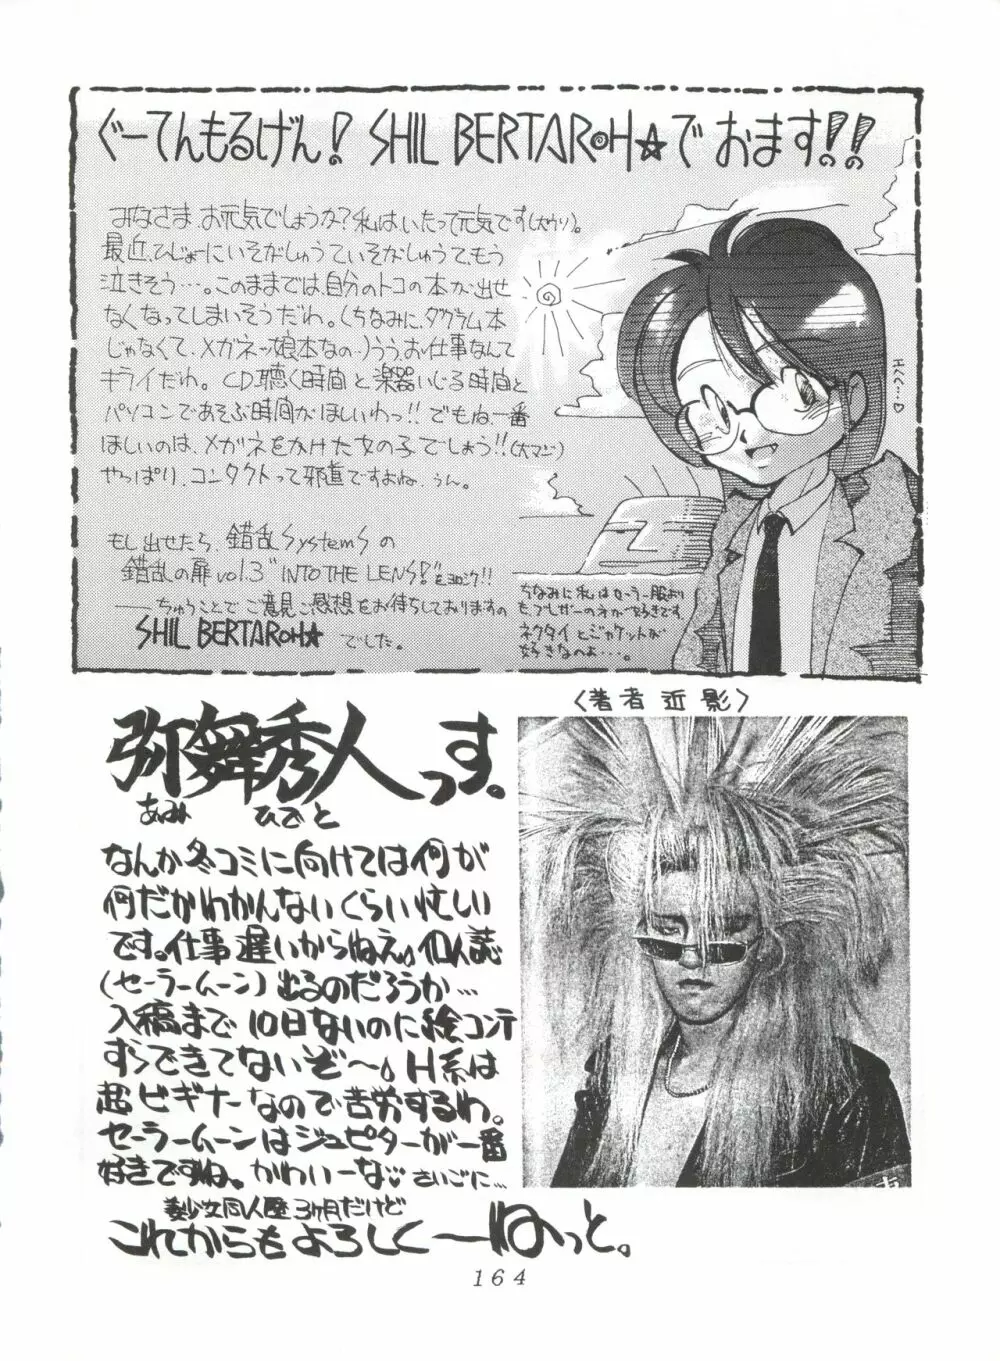 ぐーてんもるげん! SHIL BERTAROH☆で おます!!
みなさま、お元気でしょうか?私はいたって元気です(大ウソ)。
最近、ひじょーにいそがしゅうていそがしゅうて、もう
泣きそう…。このままでは自分のトコの本が出せ
なくなってしまいそうだわ。(ちなみに、ダグラム本
じゃなくて、メガネッ娘本なの…)うう、お仕事なんて
キライだわ。CD聴く時間と楽器いじる時間と
パソコンであそぶ時間がほしいわっ!! でもね、一番
ほしいのは、メガネをかけた女の子でしょう!!(大マジ)
やっぱり、コンタクトって邪道ですよね、うん。
もし出せたら、錯乱SystemSの
錯乱の扉 vol.3 "INTO THE LENS!"をヨロシク!!
——ちゅうことでご意見ご感想をお待ちしておりますの
SHIL BERTAROH☆でした。
エヘヘ…♡
ちなみに私はセーラー服より
もブレザーのほうが好きです。
ネクタイとジャケットが
好きなのよ…。
〈著者近影〉
弥舞秀人っす。
あみ ひでと
なんか冬コミに向けては何が
何だかわかんないくらい忙しい
です。仕事遅いからねえ。個人誌
(セーラームーン)出るのだろうか…
入稿まで10日ないのに絵コンテ
すらできてないぞ〜。H系は
超ビギナーなので苦労するわ。
セーラームーンはジュピターが一番
好きですね。かわいーな♡ さいごに…
美少女同人歴3ヶ月だけど
これからもよろしくーねっと。
164